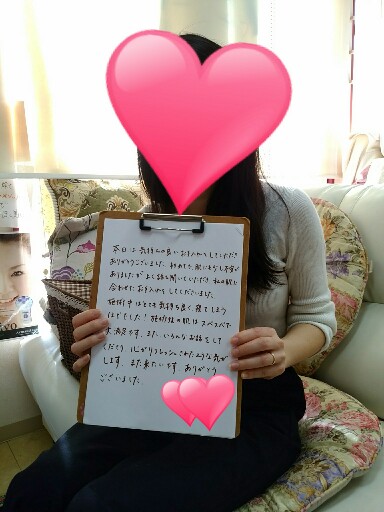 本日は気持ちの良いお手入れをしていただき
ありがとうございました。初めてで、肌にも少し不安が
ありましたが よく話を聞いていただき、私の肌に
合わせたお手入れをしてくださいました。
施術中はとても気持ち良く、寝てしまう
ほどでした！施術後の肌はスベスベで
大満足です。また、いろんなお話をして
くださり 心がリフレッシュされたような気が
します。また来たいです。ありがとう
ございました。